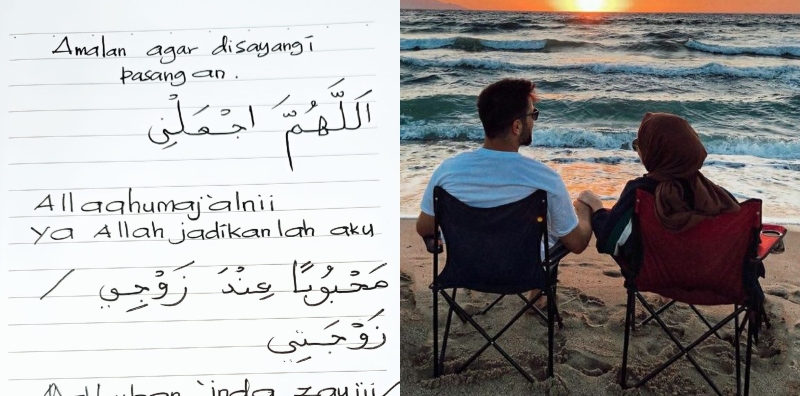 Amalan agar disayangi
pasangan.
اَللّٰهُمَّ اجْعَلْنِي
Allaahumaj`alnii
ya Allah jadikanlah aku
مَحْبُوْبًا عِنْدَ زَوْجِي /
زَوْجَتِي
`inda zaujii/